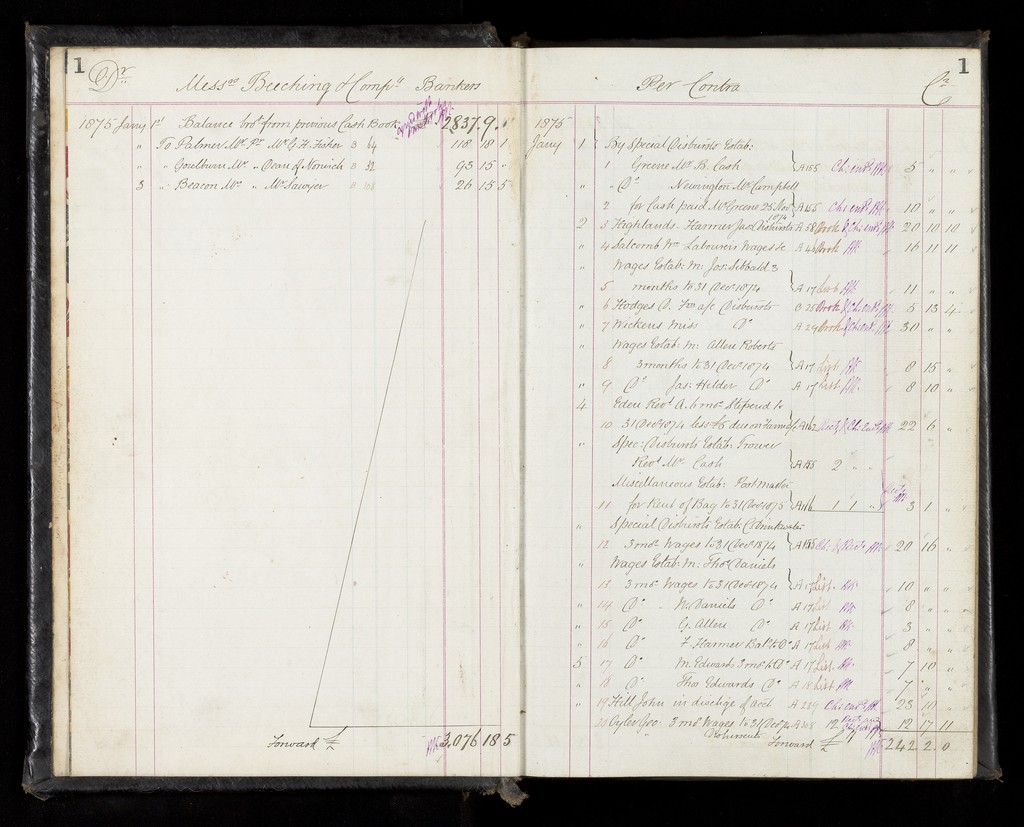 1
Dr
Messrs Beeching & Compy Bankers
1875 Jany 1st Balance brot from previous Cash Book 2837. 9. "
" To Palmer Mr Pr Mr G. H. Fisher B 64 118 18 1
" " Goulburn Mr " Dean of Norwich B 32 93 15 "
3 " Beacon Mr " Mr Sawyer B 26 15 5
Forward £ 3,076 18 5
1
Per Contra
Cr
1875
Jany 1 By Special Disbursts Estab:
1 Greene Mr B. Cash A 155 5 " "
" " Do Newington Mr Campbell
2 for Cash paid Mr Greene 25 Nov 1874 A 155 10 " "
2 3 Highlands. Harmer Jas Disbursts A 58 Book 20 10 10
" 4 Salcomb Wm Labourers Wages &c A Book 16 11 11
" Wages Estab: M: Jos. Sibbald 3
5 months to 31 Decr 1874 A 17 List 11 " "
" 6 Hodges D. Fm a/c Disbursts B 25 Book 5 13 4
" 7 Wickens Miss Do A 24 Book 30 " "
" Wages Estab: M: Allen Roberts
8 3 months to 31 Decr 1874 A 17 List 8 15 "
" 9 Do Jas. Hilder Do A 17 List 8 10 "
4 Eden Revd A. 6 mos Stipend to
10 31 Decr 1874 less A 162 22 6 "
" Spec: Disbursts Estab: Trower
Revd Mr Cash A 155 2 " "
Miscellaneous Estab: Post Master
11 for Rent of Bag to 31 Decr 1875 A 116 1 1 " 3 1 "
" Special Disbursts Estab: C. Drinkwater
12 3 mos Wages to 31 Decr 1874 A 155 20 16 "
Wages Estab: M: Thos Daniels
13 3 mos Wages to 31 Decr 1874 A 17 List 10 " "
" 14 Do " W. Daniels Do A 17 List 8 " "
" 15 Do G. Allen Do A 17 List 3 " "
" 16 Do F. Harmer Bal to Do A 17 List 8 " "
5 17 Do M. Edwards 3 mos to Do A 17 List 7 10 "
" 18 Do Thos Edwards Do A 18 List 7 " "
" 19 Hill John in dischge of acct A 239 23 10 "
" 20 Oyler Geo: 3 mos Wages to 31 Decr 74 A 12 17 11
Forward £ 242 2 0